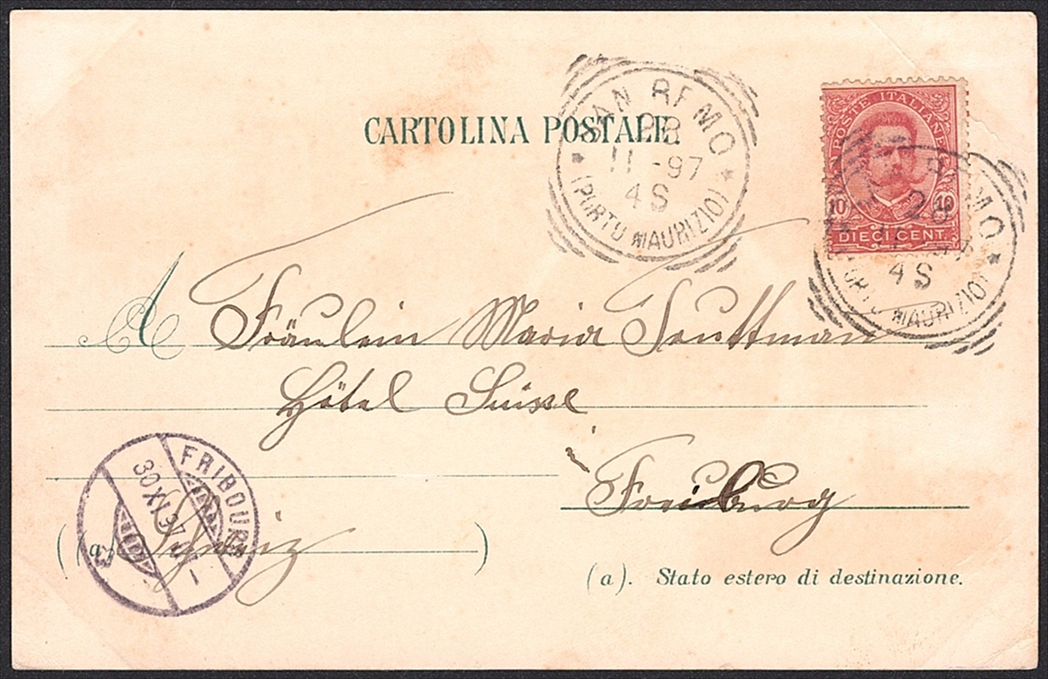 CARTOLINA POSTALE.
SAN REMO
28
11 -97
4S
* (PORTO MAURIZIO) *
POSTE ITALIANE
10 10
DIECI CENT.
REMO
28
4S
MAURIZIO) *
A Fräulein Maria
Hôtel Suisse
Freiburg
FRIBOURG
30 XI 97
(a) Schweiz )
(a). Stato estero di destinazione.